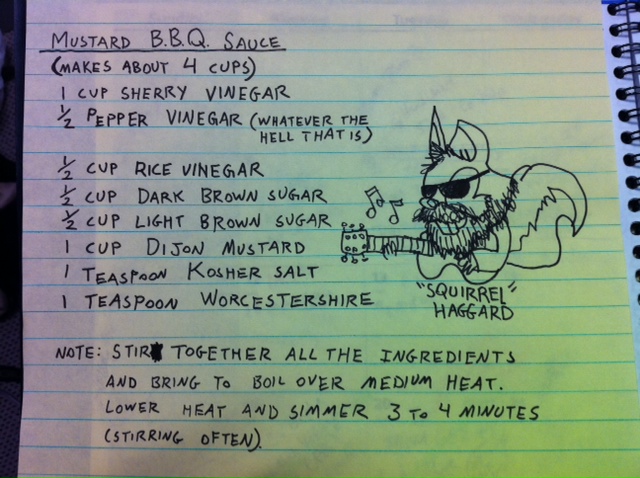 MUSTARD B.B.Q. SAUCE
(MAKES ABOUT 4 CUPS)
1 CUP SHERRY VINEGAR
1/2 PEPPER VINEGAR (WHATEVER THE
HELL THAT IS)
1/2 CUP RICE VINEGAR
1/2 CUP DARK BROWN SUGAR
1/2 CUP LIGHT BROWN SUGAR
1 CUP DIJON MUSTARD
1 TEASPOON KOSHER SALT
1 TEASPOON WORCESTERSHIRE
"SQUIRREL"
HAGGARD
NOTE: STIR TOGETHER ALL THE INGREDIENTS
AND BRING TO BOIL OVER MEDIUM HEAT.
LOWER HEAT AND SIMMER 3 TO 4 MINUTES
(STIRRING OFTEN).